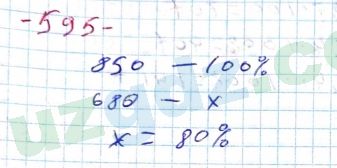 -595-
850 — 100%
680 — x
x = 80%